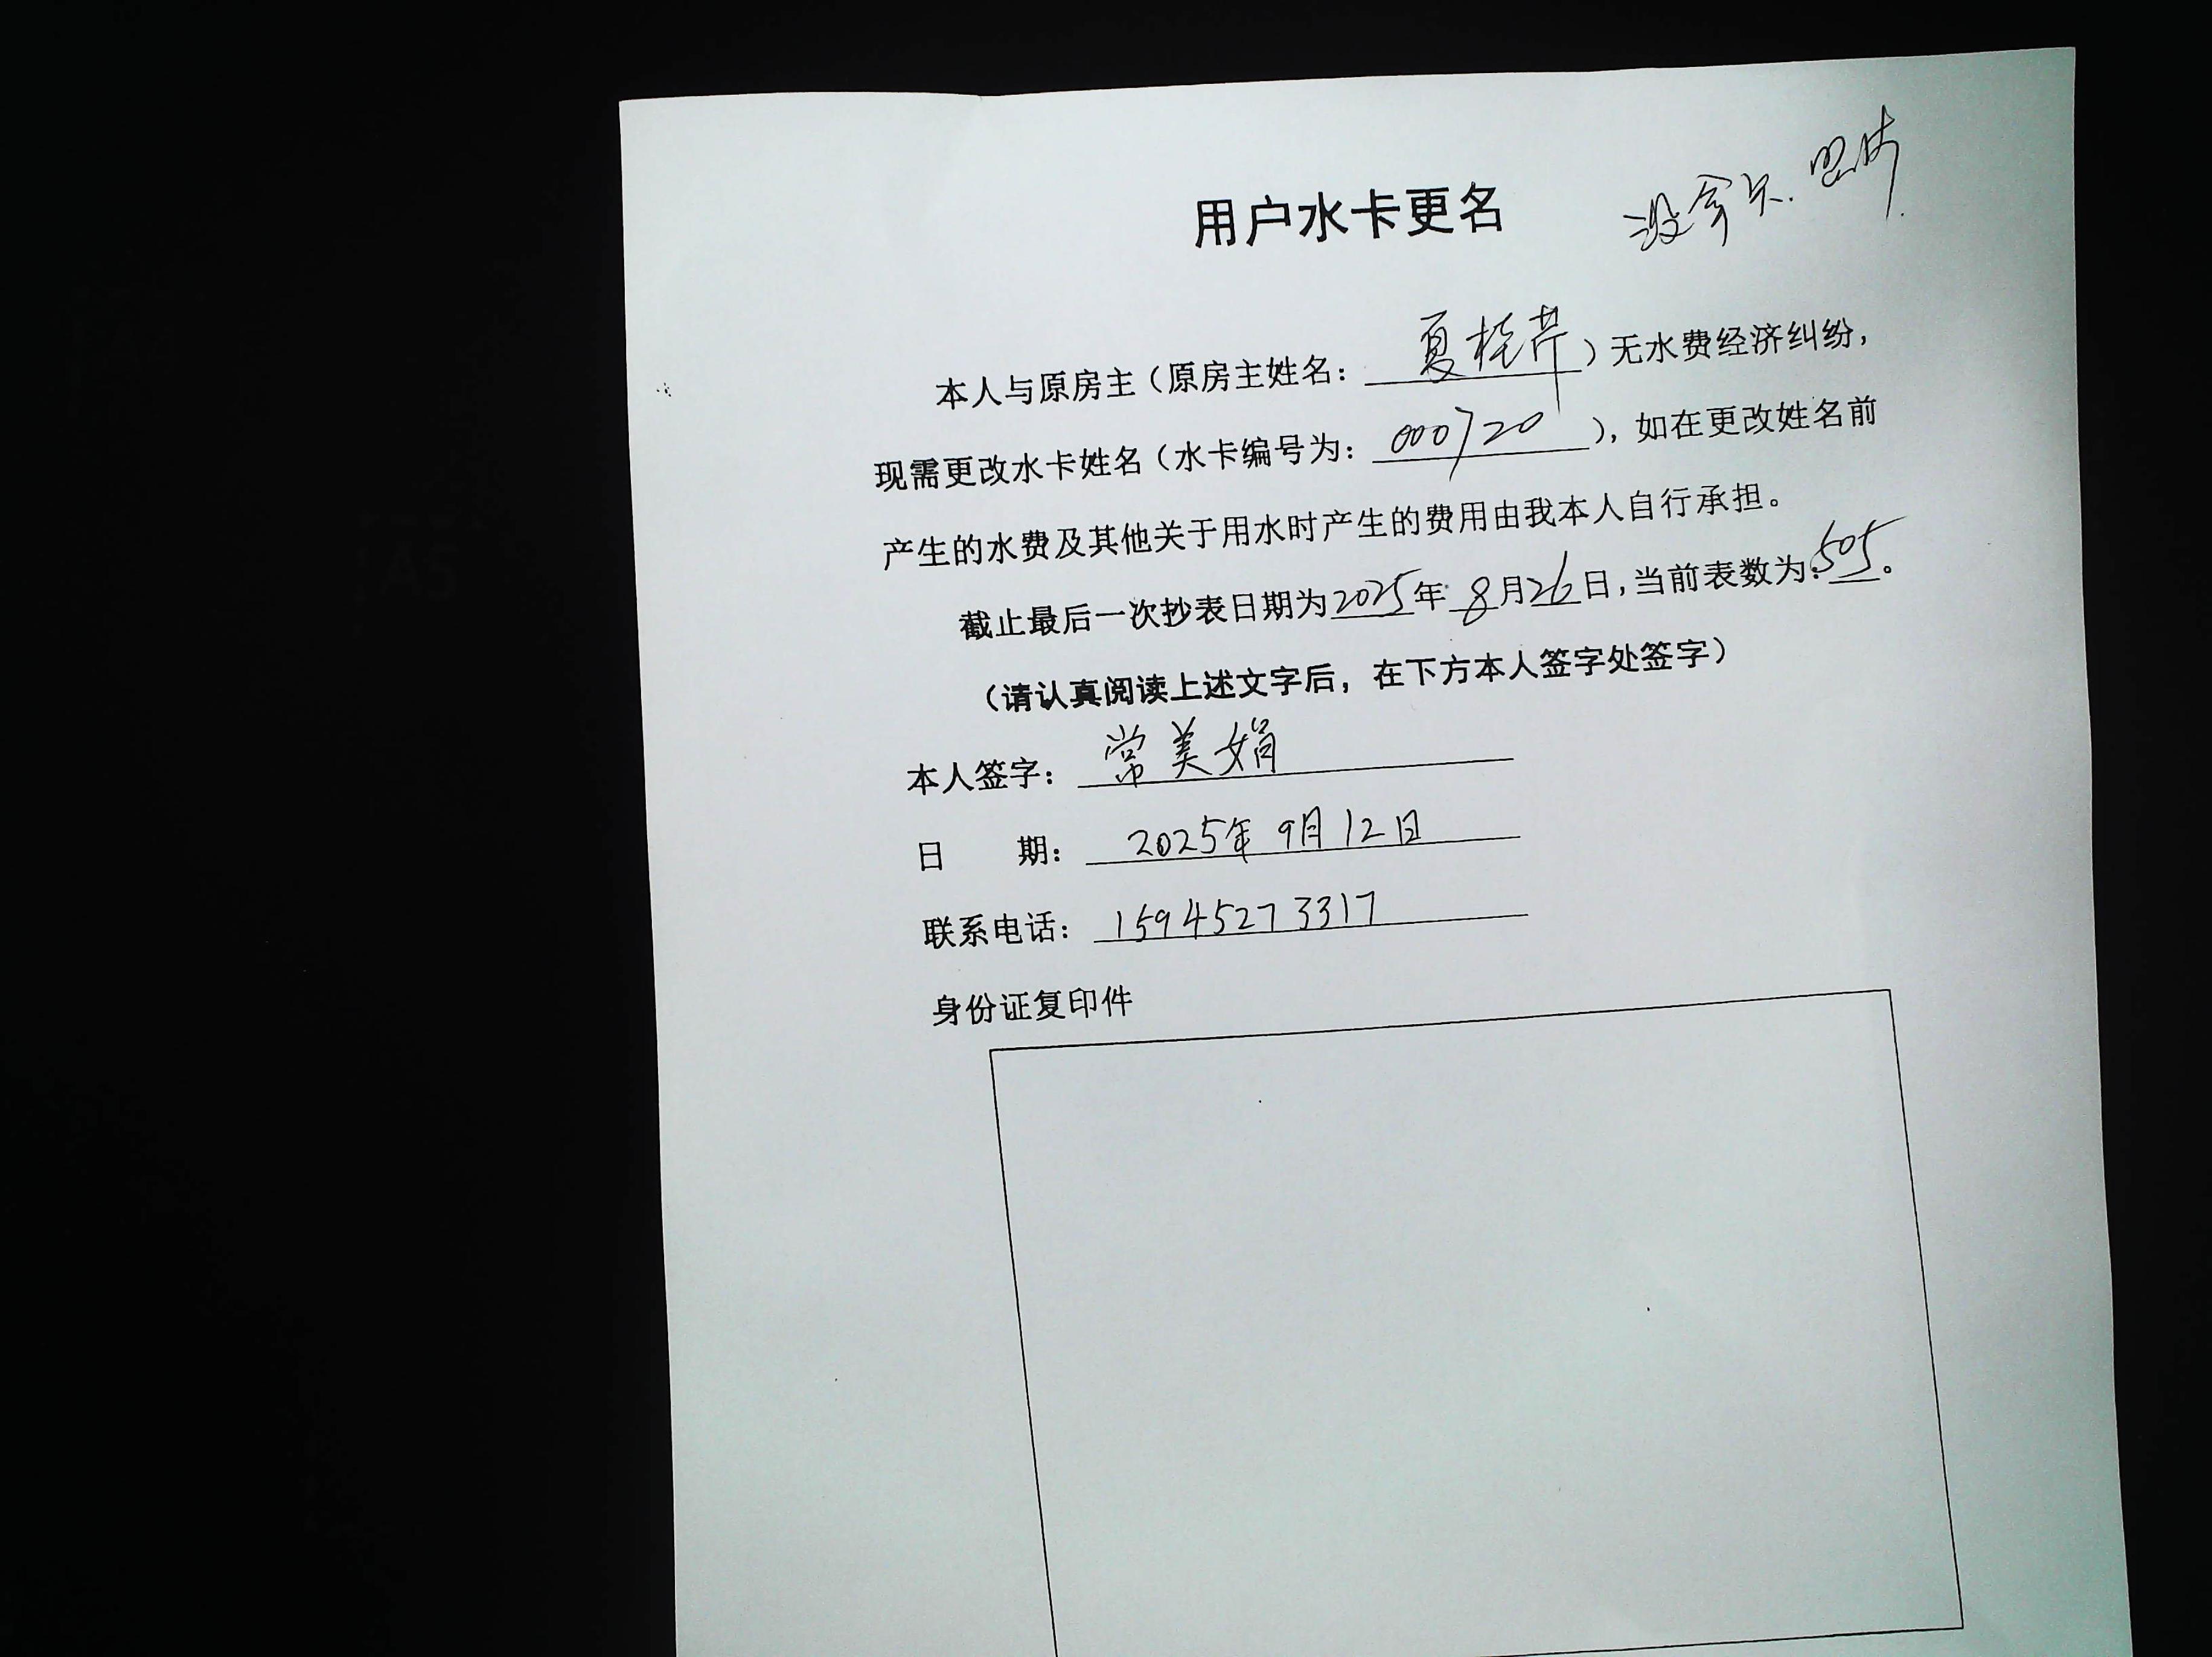 用户水卡更名
没拿卡.
本人与原房主（原房主姓名：夏桂芹）无水费经济纠纷，
现需更改水卡姓名（水卡编号为：000720），如在更改姓名前
产生的水费及其他关于用水时产生的费用由我本人自行承担。
截止最后一次抄表日期为2025年8月26日，当前表数为：505。
（请认真阅读上述文字后，在下方本人签字处签字）
本人签字：常美娟
日 期：2025年9月12日
联系电话：15945273317
身份证复印件